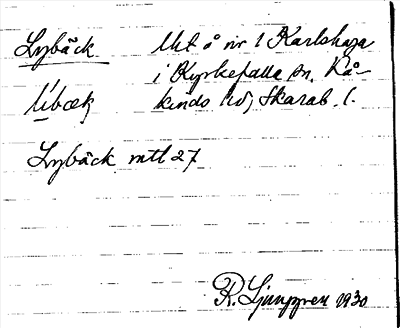 Lybäck. Utt å nr 1 Karlshaga
i Kyrkefalla sn, Kå-
líbæk kinds hd, Skarab. l.
Lybäck mtl 27
R. Ljunggren 1930